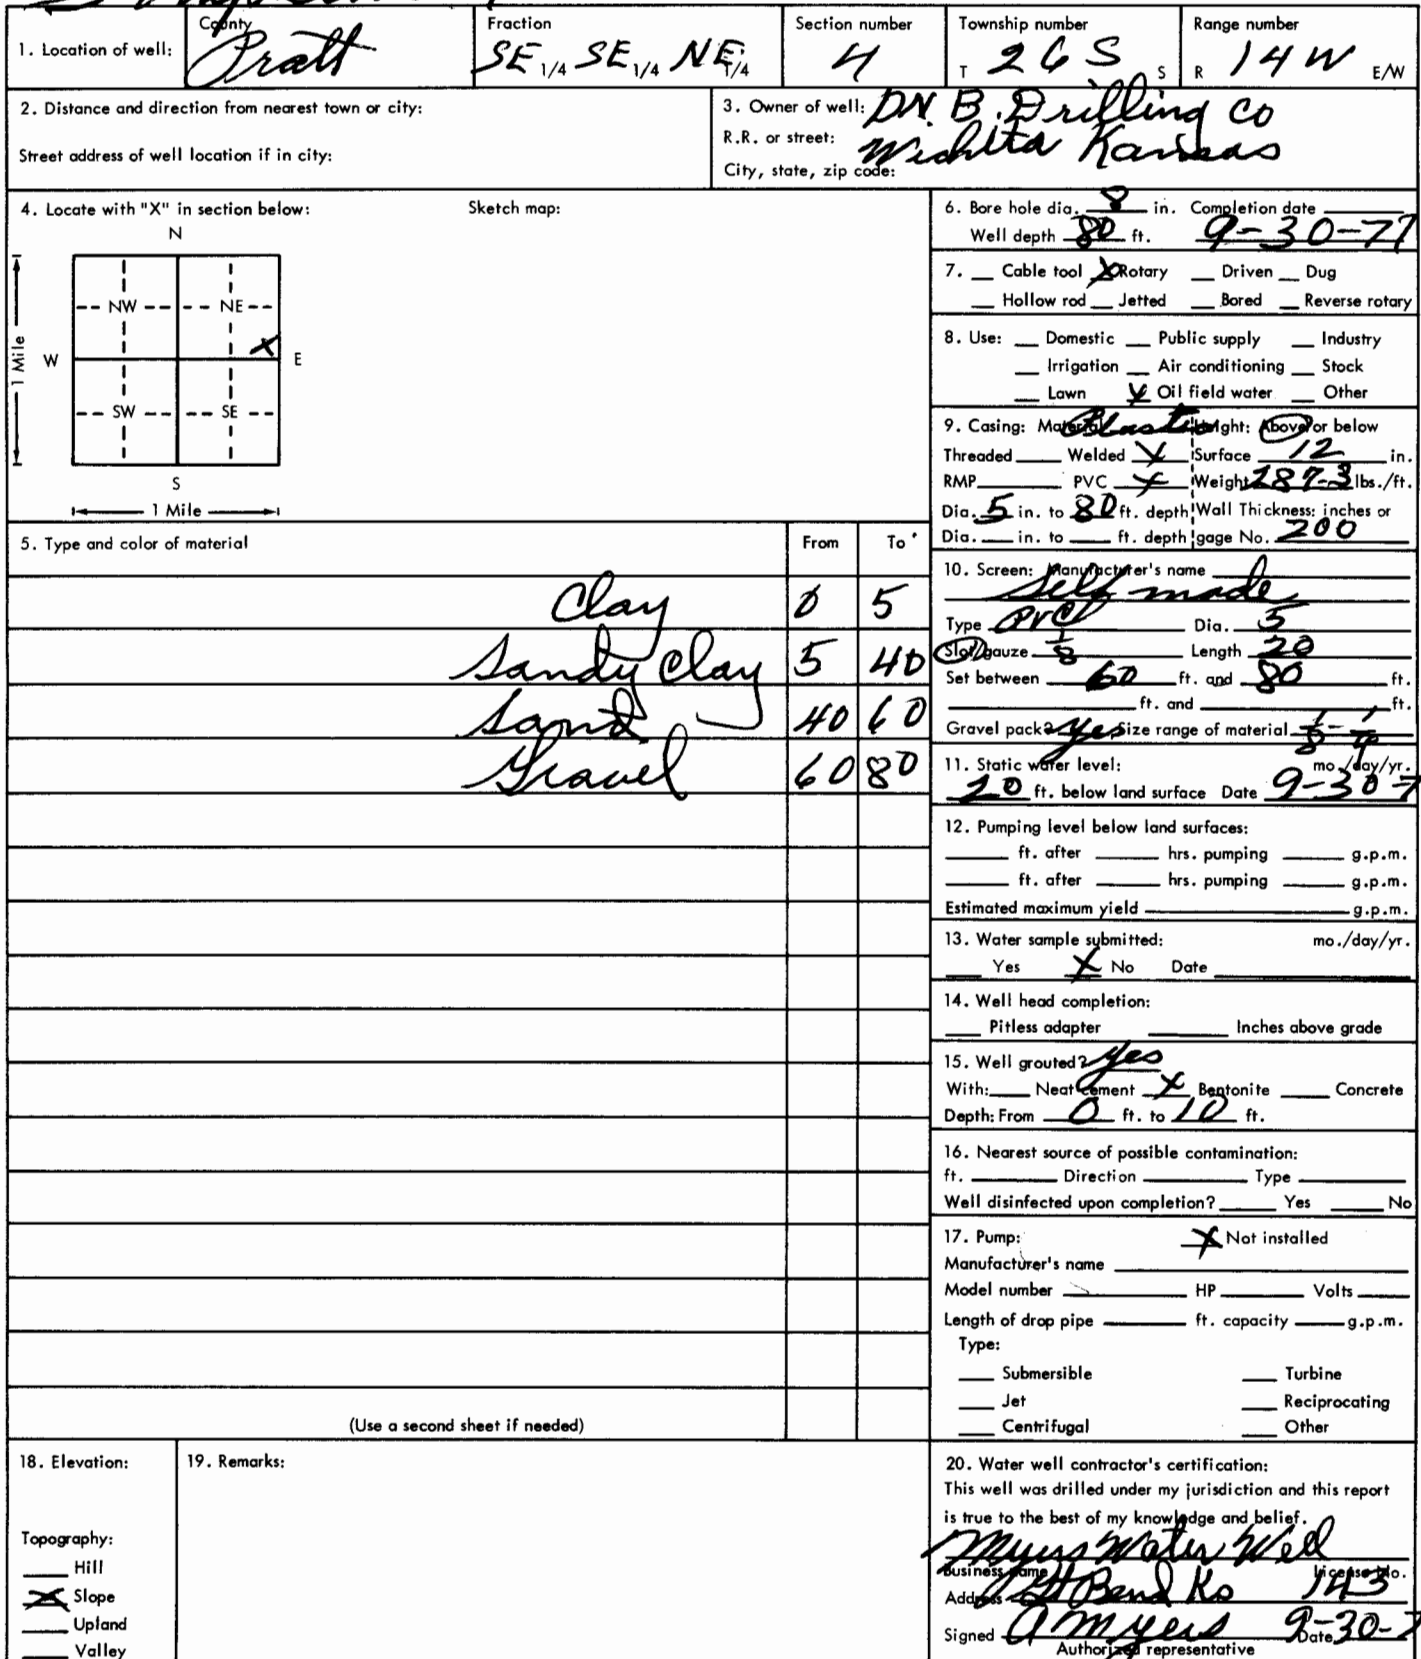 County Fraction Section number Township number Range number
1. Location of well: Pratt SE 1/4 SE 1/4 NE 1/4 4 T 26 S S R 14 W E/W
2. Distance and direction from nearest town or city:
Street address of well location if in city:
3. Owner of well: D.N.B. Drilling Co
R.R. or street: Wichita Kansas
City, state, zip code:
4. Locate with "X" in section below: Sketch map:
N
NW NE
1 Mile W X E
SW SE
S
1 Mile
5. Type and color of material From To
Clay 0 5
Sandy Clay 5 40
Sand 40 60
Gravel 60 80
(Use a second sheet if needed)
6. Bore hole dia. 8 in. Completion date
Well depth 80 ft. 9-30-77
7. Cable tool X Rotary Driven Dug
Hollow rod Jetted Bored Reverse rotary
8. Use: Domestic Public supply Industry
Irrigation Air conditioning Stock
Lawn X Oil field water Other
9. Casing: Material Plastic Height: Above or below
Threaded Welded X Surface 12 in.
RMP PVC X Weight 287-3 lbs./ft.
Dia. 5 in. to 80 ft. depth Wall Thickness: inches or
Dia. in. to ft. depth gage No. 200
10. Screen: Manufacturer's name
Self made
Type PVC Dia. 5
Slot/gauze 1/8 Length 20
Set between 60 ft. and 80 ft.
ft. and ft.
Gravel pack? yes Size range of material 1/8 - 1/4
11. Static water level: mo./day/yr.
20 ft. below land surface Date 9-30-7
12. Pumping level below land surfaces:
ft. after hrs. pumping g.p.m.
ft. after hrs. pumping g.p.m.
Estimated maximum yield g.p.m.
13. Water sample submitted: mo./day/yr.
Yes X No Date
14. Well head completion:
Pitless adapter Inches above grade
15. Well grouted? yes
With: Neat cement X Bentonite Concrete
Depth: From 0 ft. to 10 ft.
16. Nearest source of possible contamination:
ft. Direction Type
Well disinfected upon completion? Yes No
17. Pump: X Not installed
Manufacturer's name
Model number HP Volts
Length of drop pipe ft. capacity g.p.m.
Type:
Submersible Turbine
Jet Reciprocating
Centrifugal Other
18. Elevation:
Topography:
Hill
X Slope
Upland
Valley
19. Remarks:
20. Water well contractor's certification:
This well was drilled under my jurisdiction and this report
is true to the best of my knowledge and belief.
Myers Water Well
Business name License No.
Address Gt Bend Ks 143
Signed A Myers Date 9-30-7
Authorized representative